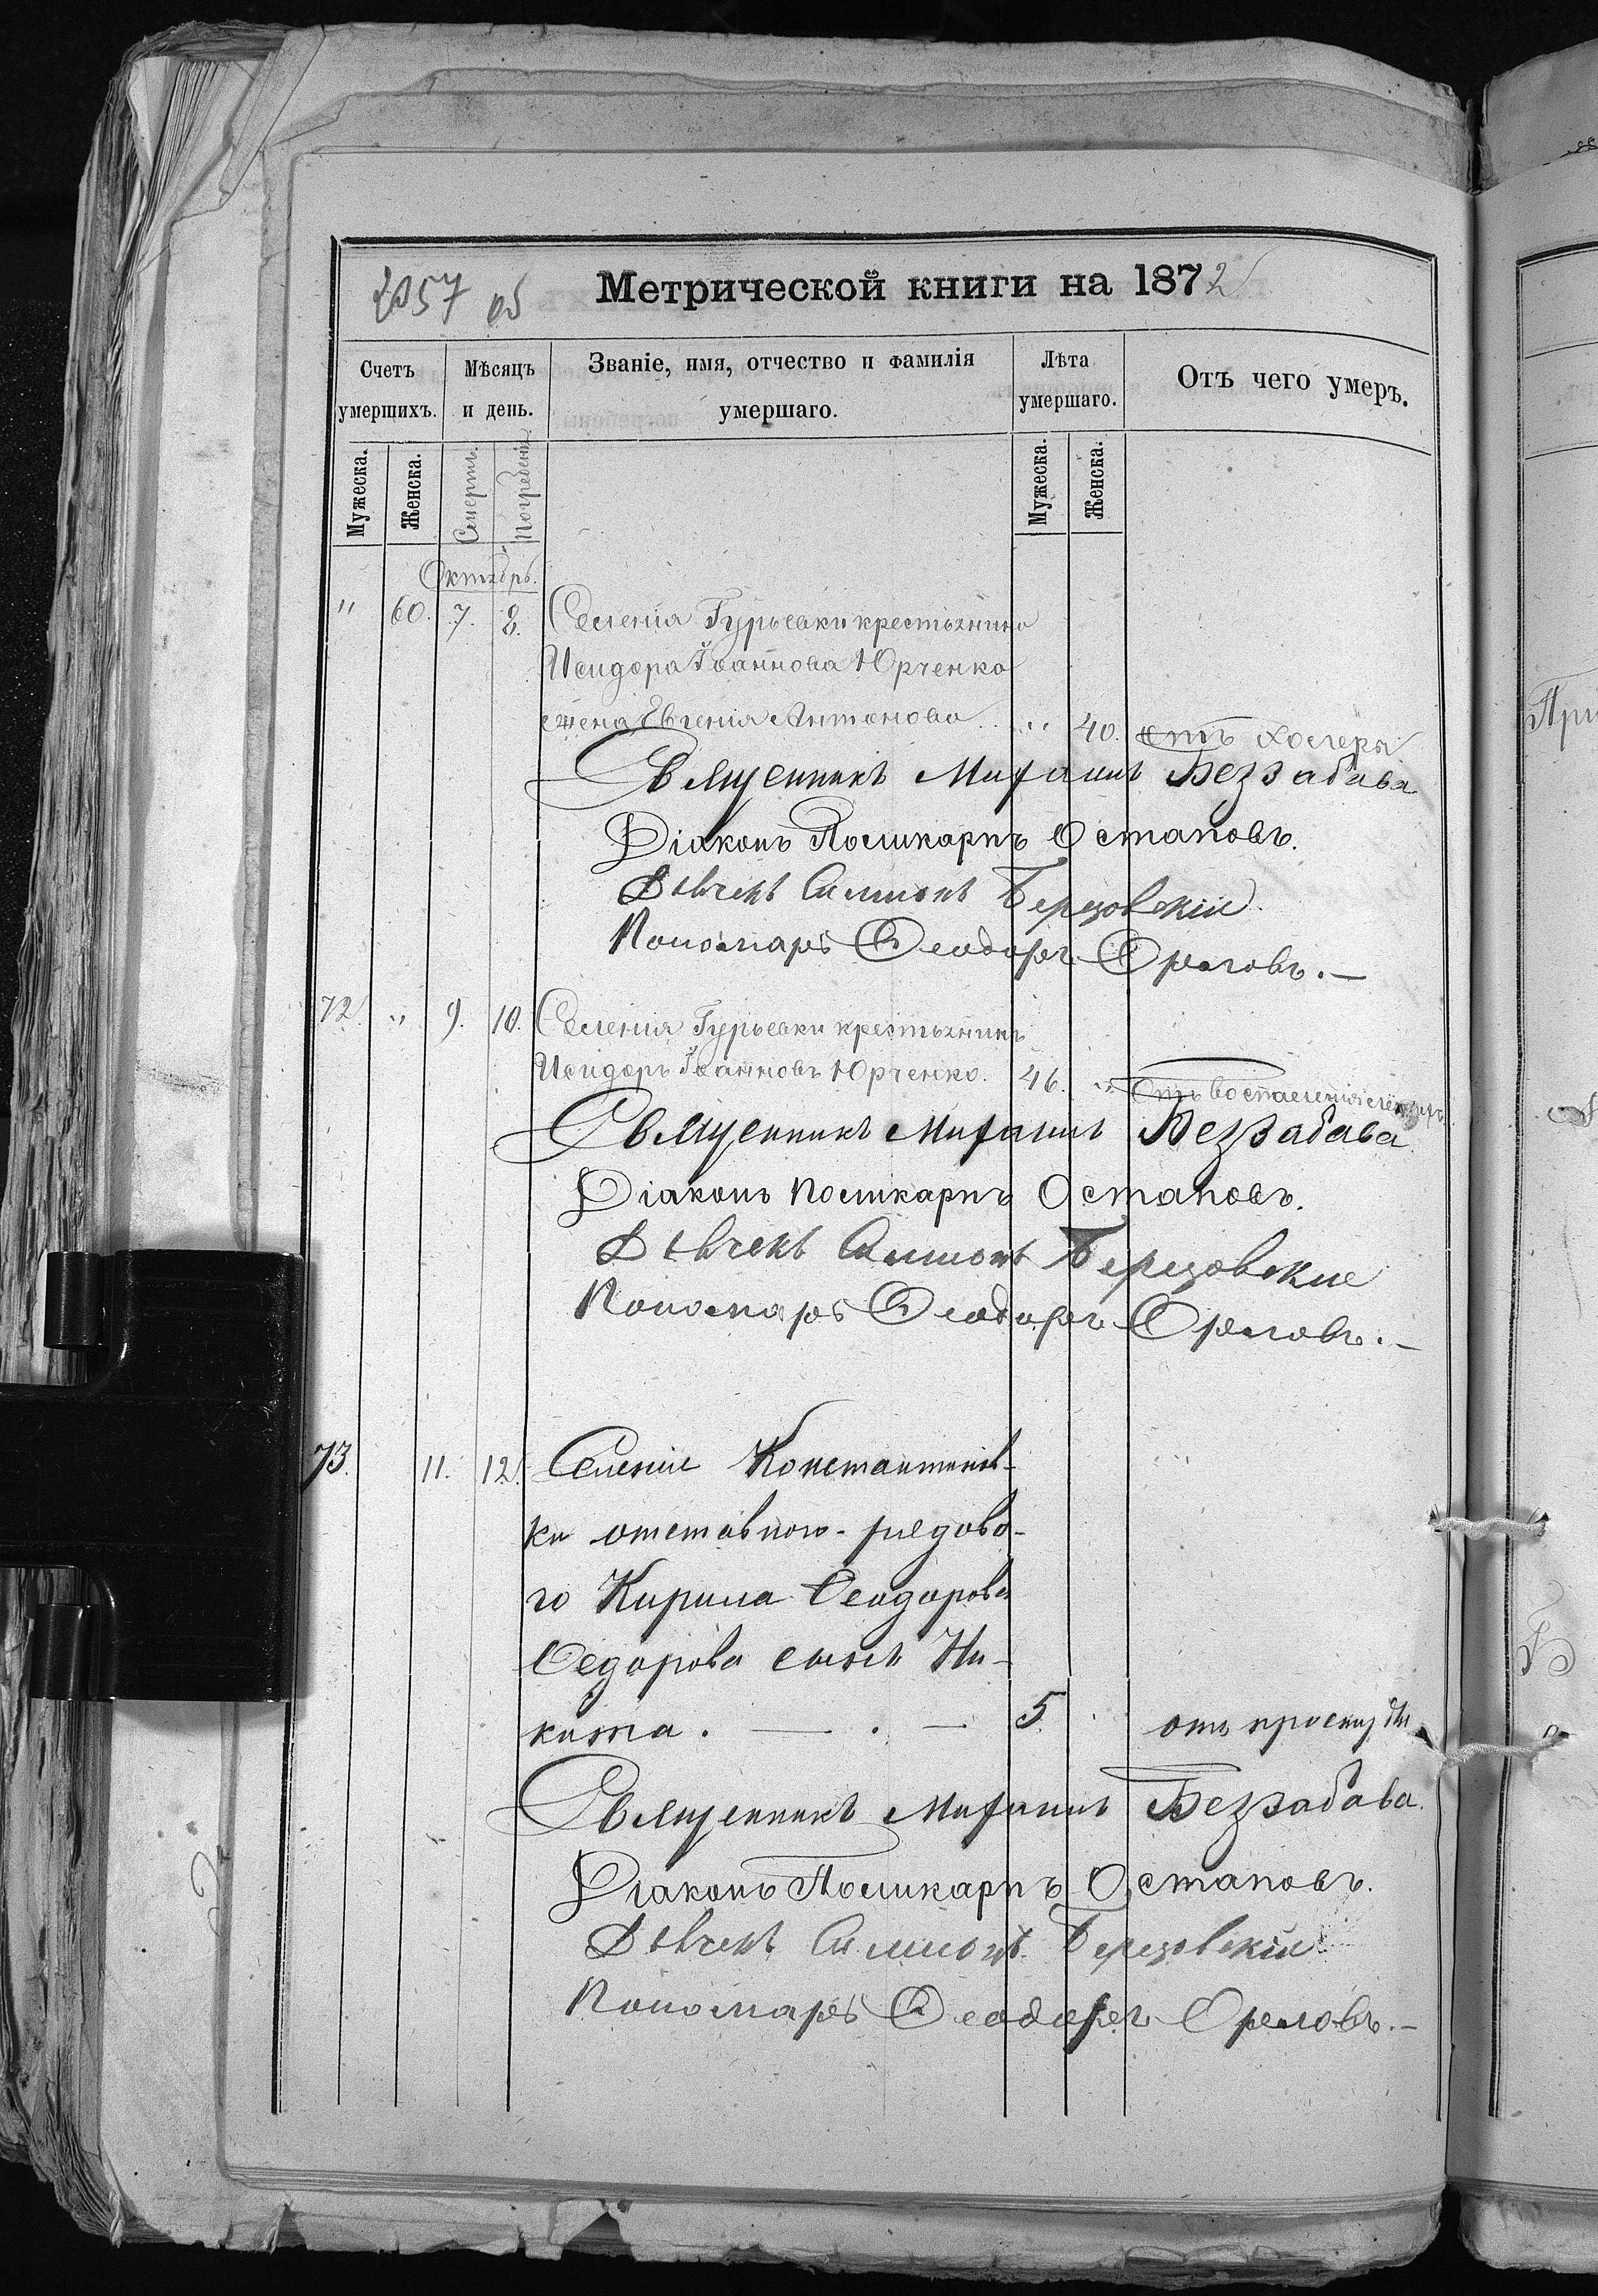 2057 об
Метрической книги на 1872
Счетъ умершихъ.
Мѣсяцъ и день.
Званіе, имя, отчество и фамилія умершаго.
Лѣта умершаго.
Отъ чего умеръ.
Мужеска.
Женска.
Смерти.
Погребенія.
Мужеска.
Женска.
Октябрь.
" 60. 7. 8. Селенія Гурьевки крестьянина
Исидора Іоаннова Юрченко
жена Евгенія Антонова . . " 40. отъ холеры
Священникъ Михаилъ Беззабава
Діаконъ Поликарпъ Остаповъ.
Дьячекъ Симионъ Березовскій
Пономарь Ѳеодоръ Орловъ. —
72. " 9. 10. Селенія Гурьевки крестьянинъ
Исидоръ Іоанновъ Юрченко. 46. " Отъ воспаленія
Священникъ Михаилъ Беззабава
Діаконъ Поликарпъ Остаповъ.
Дьячекъ Симионъ Березовские
Пономарь Ѳеодоръ Орловъ. —
73. 11. 12. Селеніе Константинов-
ки отставного рядово-
го Кирила Сеодорова
Седорова сынъ Ни-
кита. — . — 5. отъ простуды
Священникъ Михаилъ Беззабава.
Діаконъ Поликарпъ Остаповъ.
Дьячекъ Симионъ Березовскій
Пономарь Ѳеодоръ Орловъ. —
При
Б